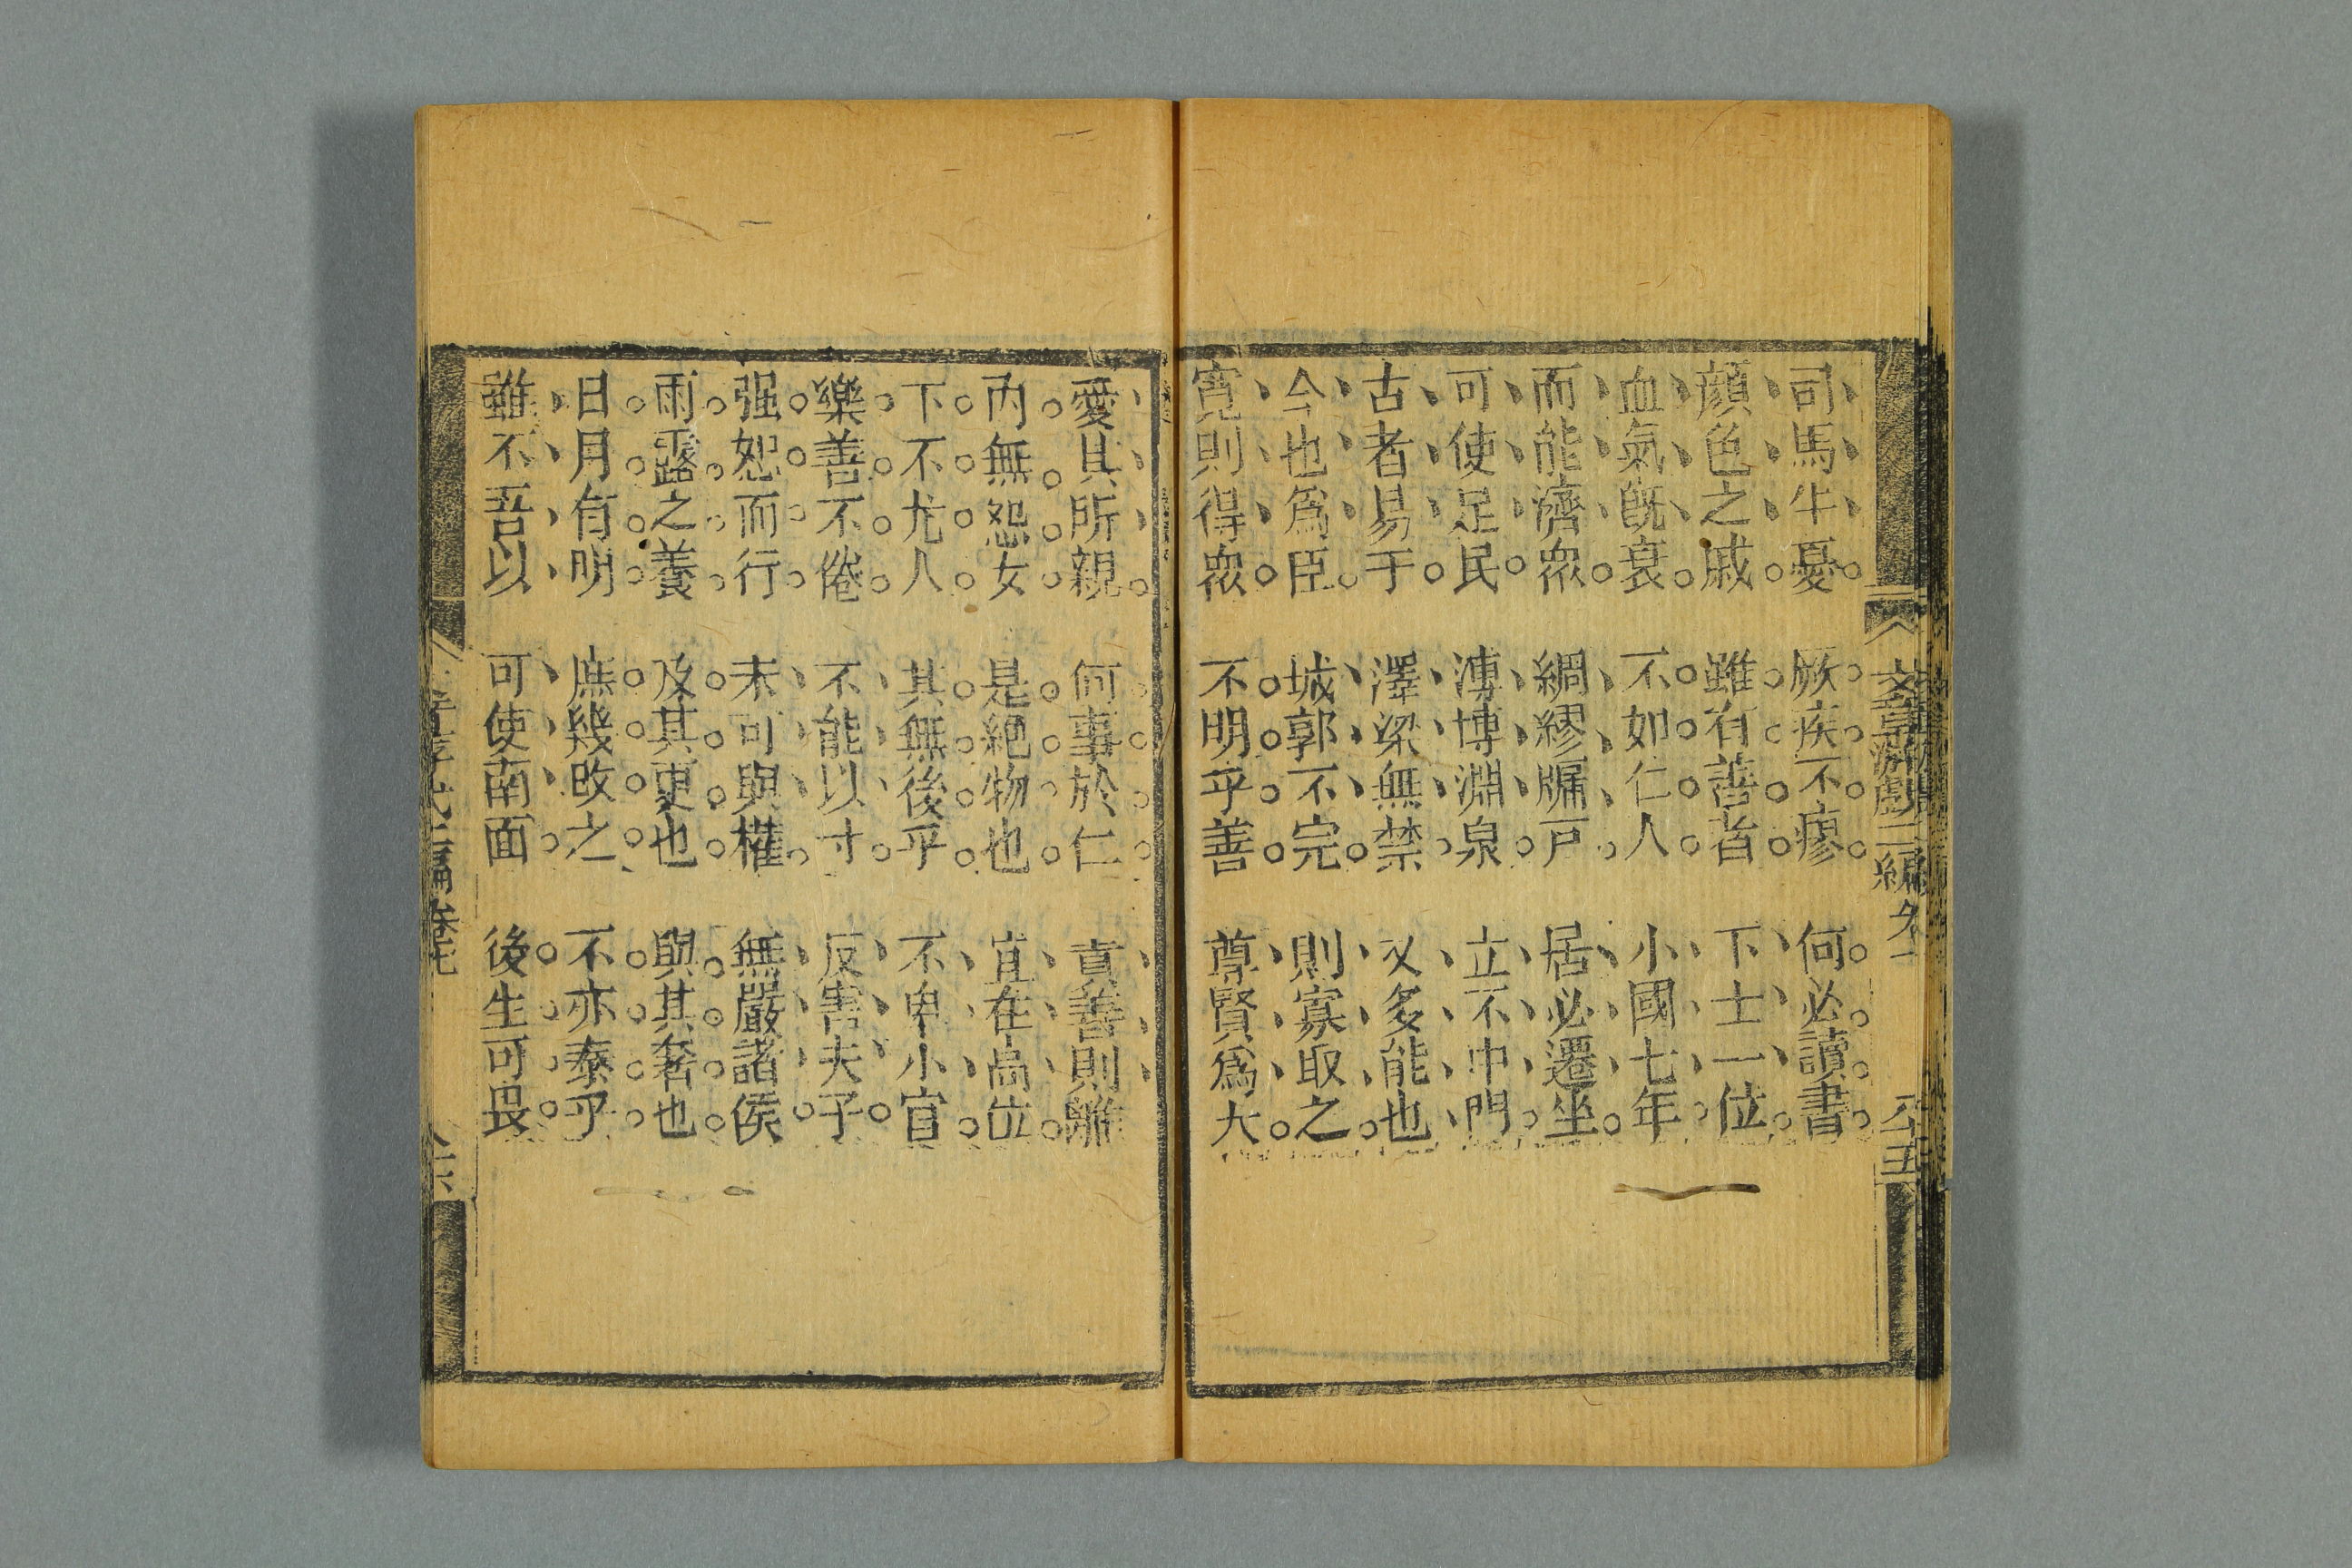 司馬牛憂 厥疾不瘳 何必讀書
顔色之戚 雖有善者 下士一位
血氣旣衰 不如仁人 小國七年
而能濟衆 綢繆牖戸 居必遷坐
可使足民 溥博淵泉 立不中門
古者易于 澤梁無禁 又多能也
今也爲臣 城郭不完 則寡取之
寛則得衆 不明乎善 尊賢爲大
愛其所親 何事於仁 責善則離
内無怨女 是絶物也 宜在高位
下不尤人 其無後乎 不卑小官
樂善不倦 不能以寸 反害夫子
强恕而行 未可與權 無嚴諸侯
雨露之養 及其更也 與其奢也
日月有明 庶幾改之 不亦泰乎
雖不吾以 可使南面 後生可畏